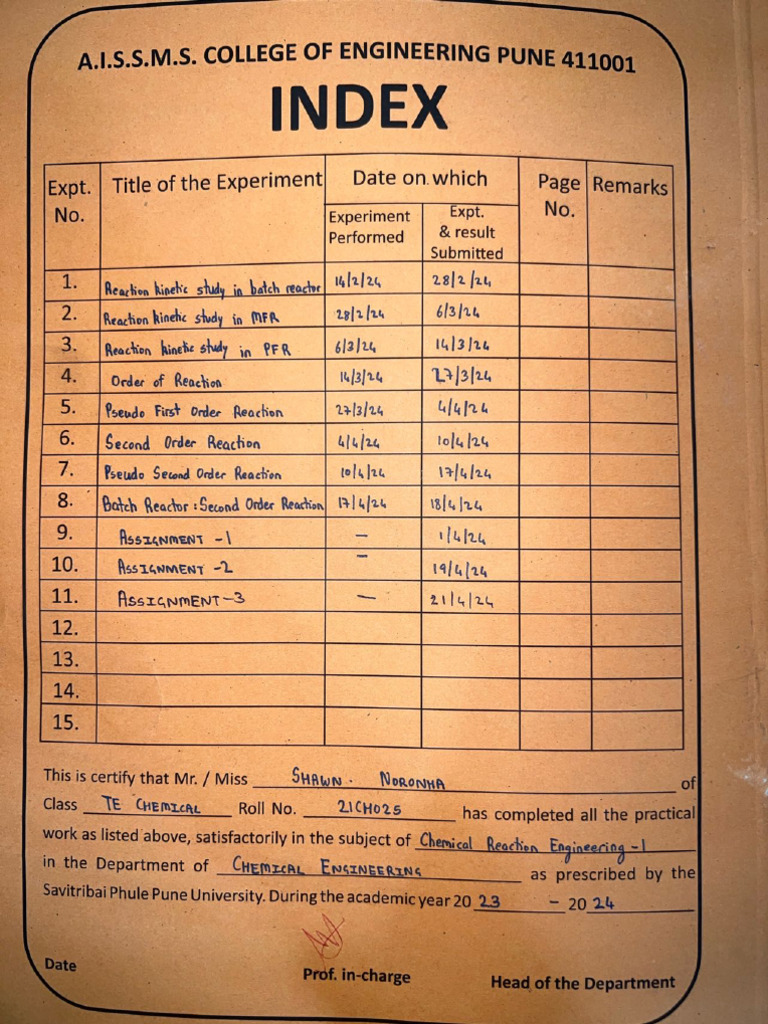 A.I.S.S.M.S. COLLEGE OF ENGINEERING PUNE 411001
INDEX
Expt. No. Title of the Experiment Date on which Page No. Remarks
Experiment Performed Expt. & result Submitted
1. Reaction kinetic study in batch reactor 14/2/24 28/2/24
2. Reaction kinetic study in MFR 28/2/24 6/3/24
3. Reaction kinetic study in PFR 6/3/24 14/3/24
4. Order of Reaction 14/3/24 27/3/24
5. Pseudo First Order Reaction 27/3/24 4/4/24
6. Second Order Reaction 4/4/24 10/4/24
7. Pseudo Second Order Reaction 10/4/24 17/4/24
8. Batch Reactor : Second Order Reaction 17/4/24 18/4/24
9. ASSIGNMENT -1 — 1/4/24
10. ASSIGNMENT -2 — 19/4/24
11. ASSIGNMENT-3 — 21/4/24
12.
13.
14.
15.
This is certify that Mr. / Miss SHAWN. NORONHA of
Class TE CHEMICAL Roll No. 21CH025 has completed all the practical
work as listed above, satisfactorily in the subject of Chemical Reaction Engineering -1
in the Department of CHEMICAL ENGINEERING as prescribed by the
Savitribai Phule Pune University. During the academic year 20 23 - 20 24
Date Prof. in-charge Head of the Department